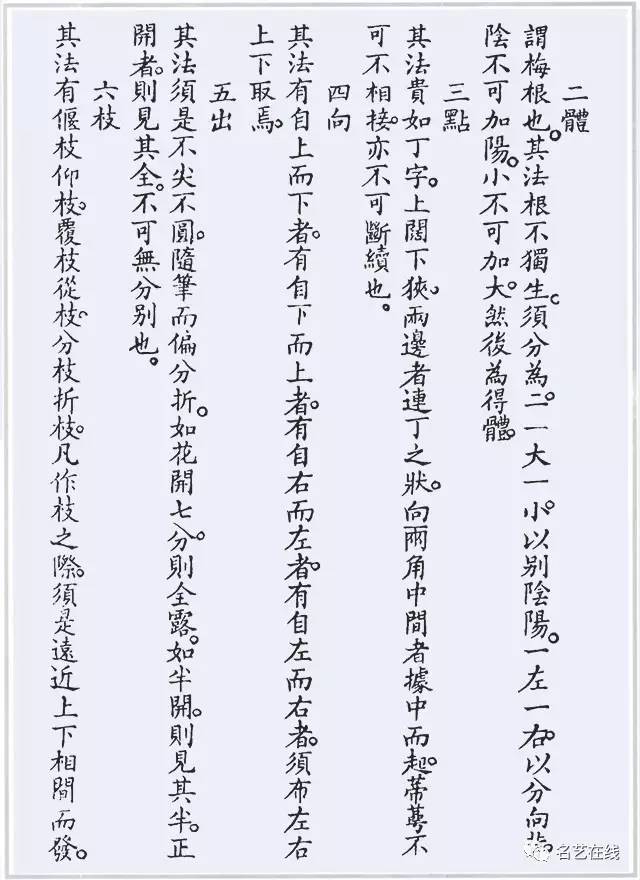 二體
謂梅根也。其法根不獨生。須分為二。一大一小。以别陰陽。一左一右。以分向背。
陰不可加陽。小不可加大。然後為得體。
三點
其法貴如丁字。上闊下狹。兩邊者連丁之狀。向兩角中間者據中而起。蒂萼不
可不相接。亦不可斷續也。
四向
其法有自上而下者。有自下而上者。有自右而左者。有自左而右者。須布左右
上下取焉。
五出
其法須是不尖不圓。隨筆而偏分折。如花開七分。則全露。如半開。則見其半。正
開者。則見其全。不可無分别也。
六枝
其法有偃枝仰枝。覆枝從枝。分枝折枝。凡作枝之際。須是遠近上下相間而發。
名艺在线